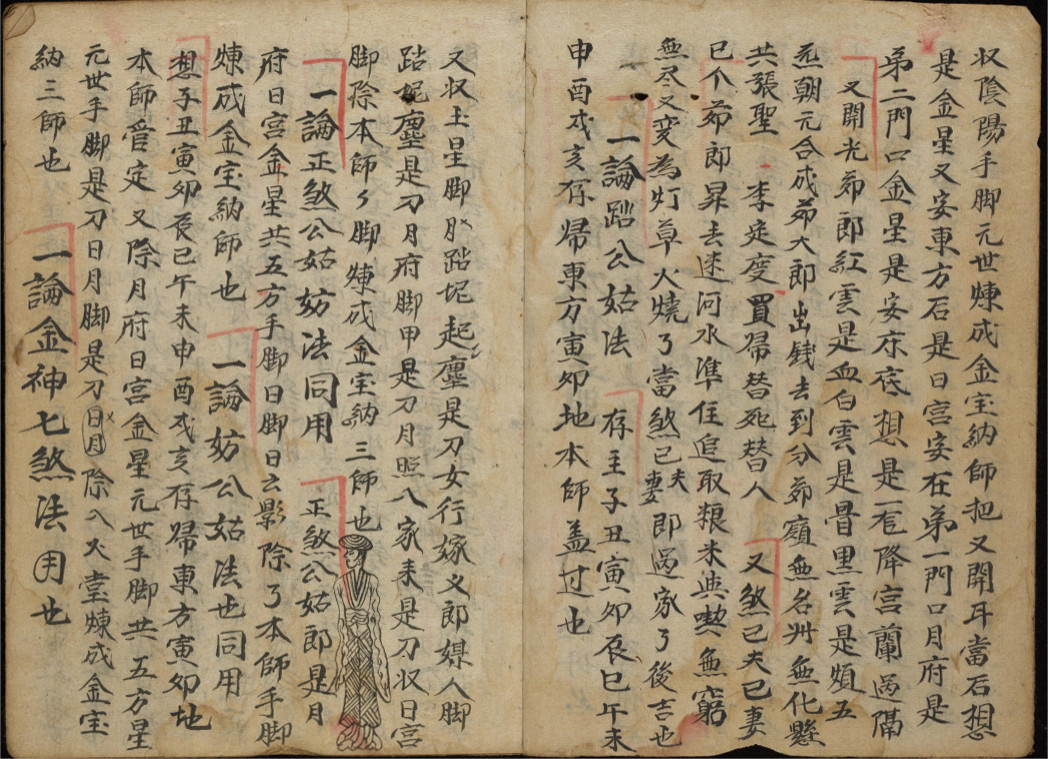 収陰陽手脚元世煉成金宝納師把又開耳當石想
是金星又安東方石是日宮安在弟一門口月府是
弟二門口金星是安床底想是一宅降宮蘭過隔
又開光茆郎紅雲是血白雲是骨黒雲是煩五
無朝元合成茆大郎出銭去到分茆嶺無名州無化懸
共張聖 李定度買歸替死替人 又煞已夫已妻
已个茆郎昇去速河水準住追取粮米與喫無窮
無尽又変為灯草火燒了當煞已夫妻即過家了後吉也
一論踏公姑法 存王子丑寅卯辰巳午未
申酉戌亥存歸東方寅卯地本師盖过也
又収土星脚月踏坭起塵是刀女行嫁义郎媒人脚
踏坭塵是刀月府脚甲是刀月照入家未是刀収日宮
脚除本師々脚煉成金宝納三師也
一論正煞公姑妨法同用 正煞公姑郎是月
府日宮金星共五方手脚日脚日云影除了本師手脚
煉成金宝納師也 一論妨公姑法也同用
想子丑寅卯辰巳午未申酉戌亥存歸東方寅卯地
本師管定又除月府日宮金星元世手脚共五方星
元世手脚是刀日月脚是刀日月除入火堂煉成金宝
納三師也 一論金神七煞法用也